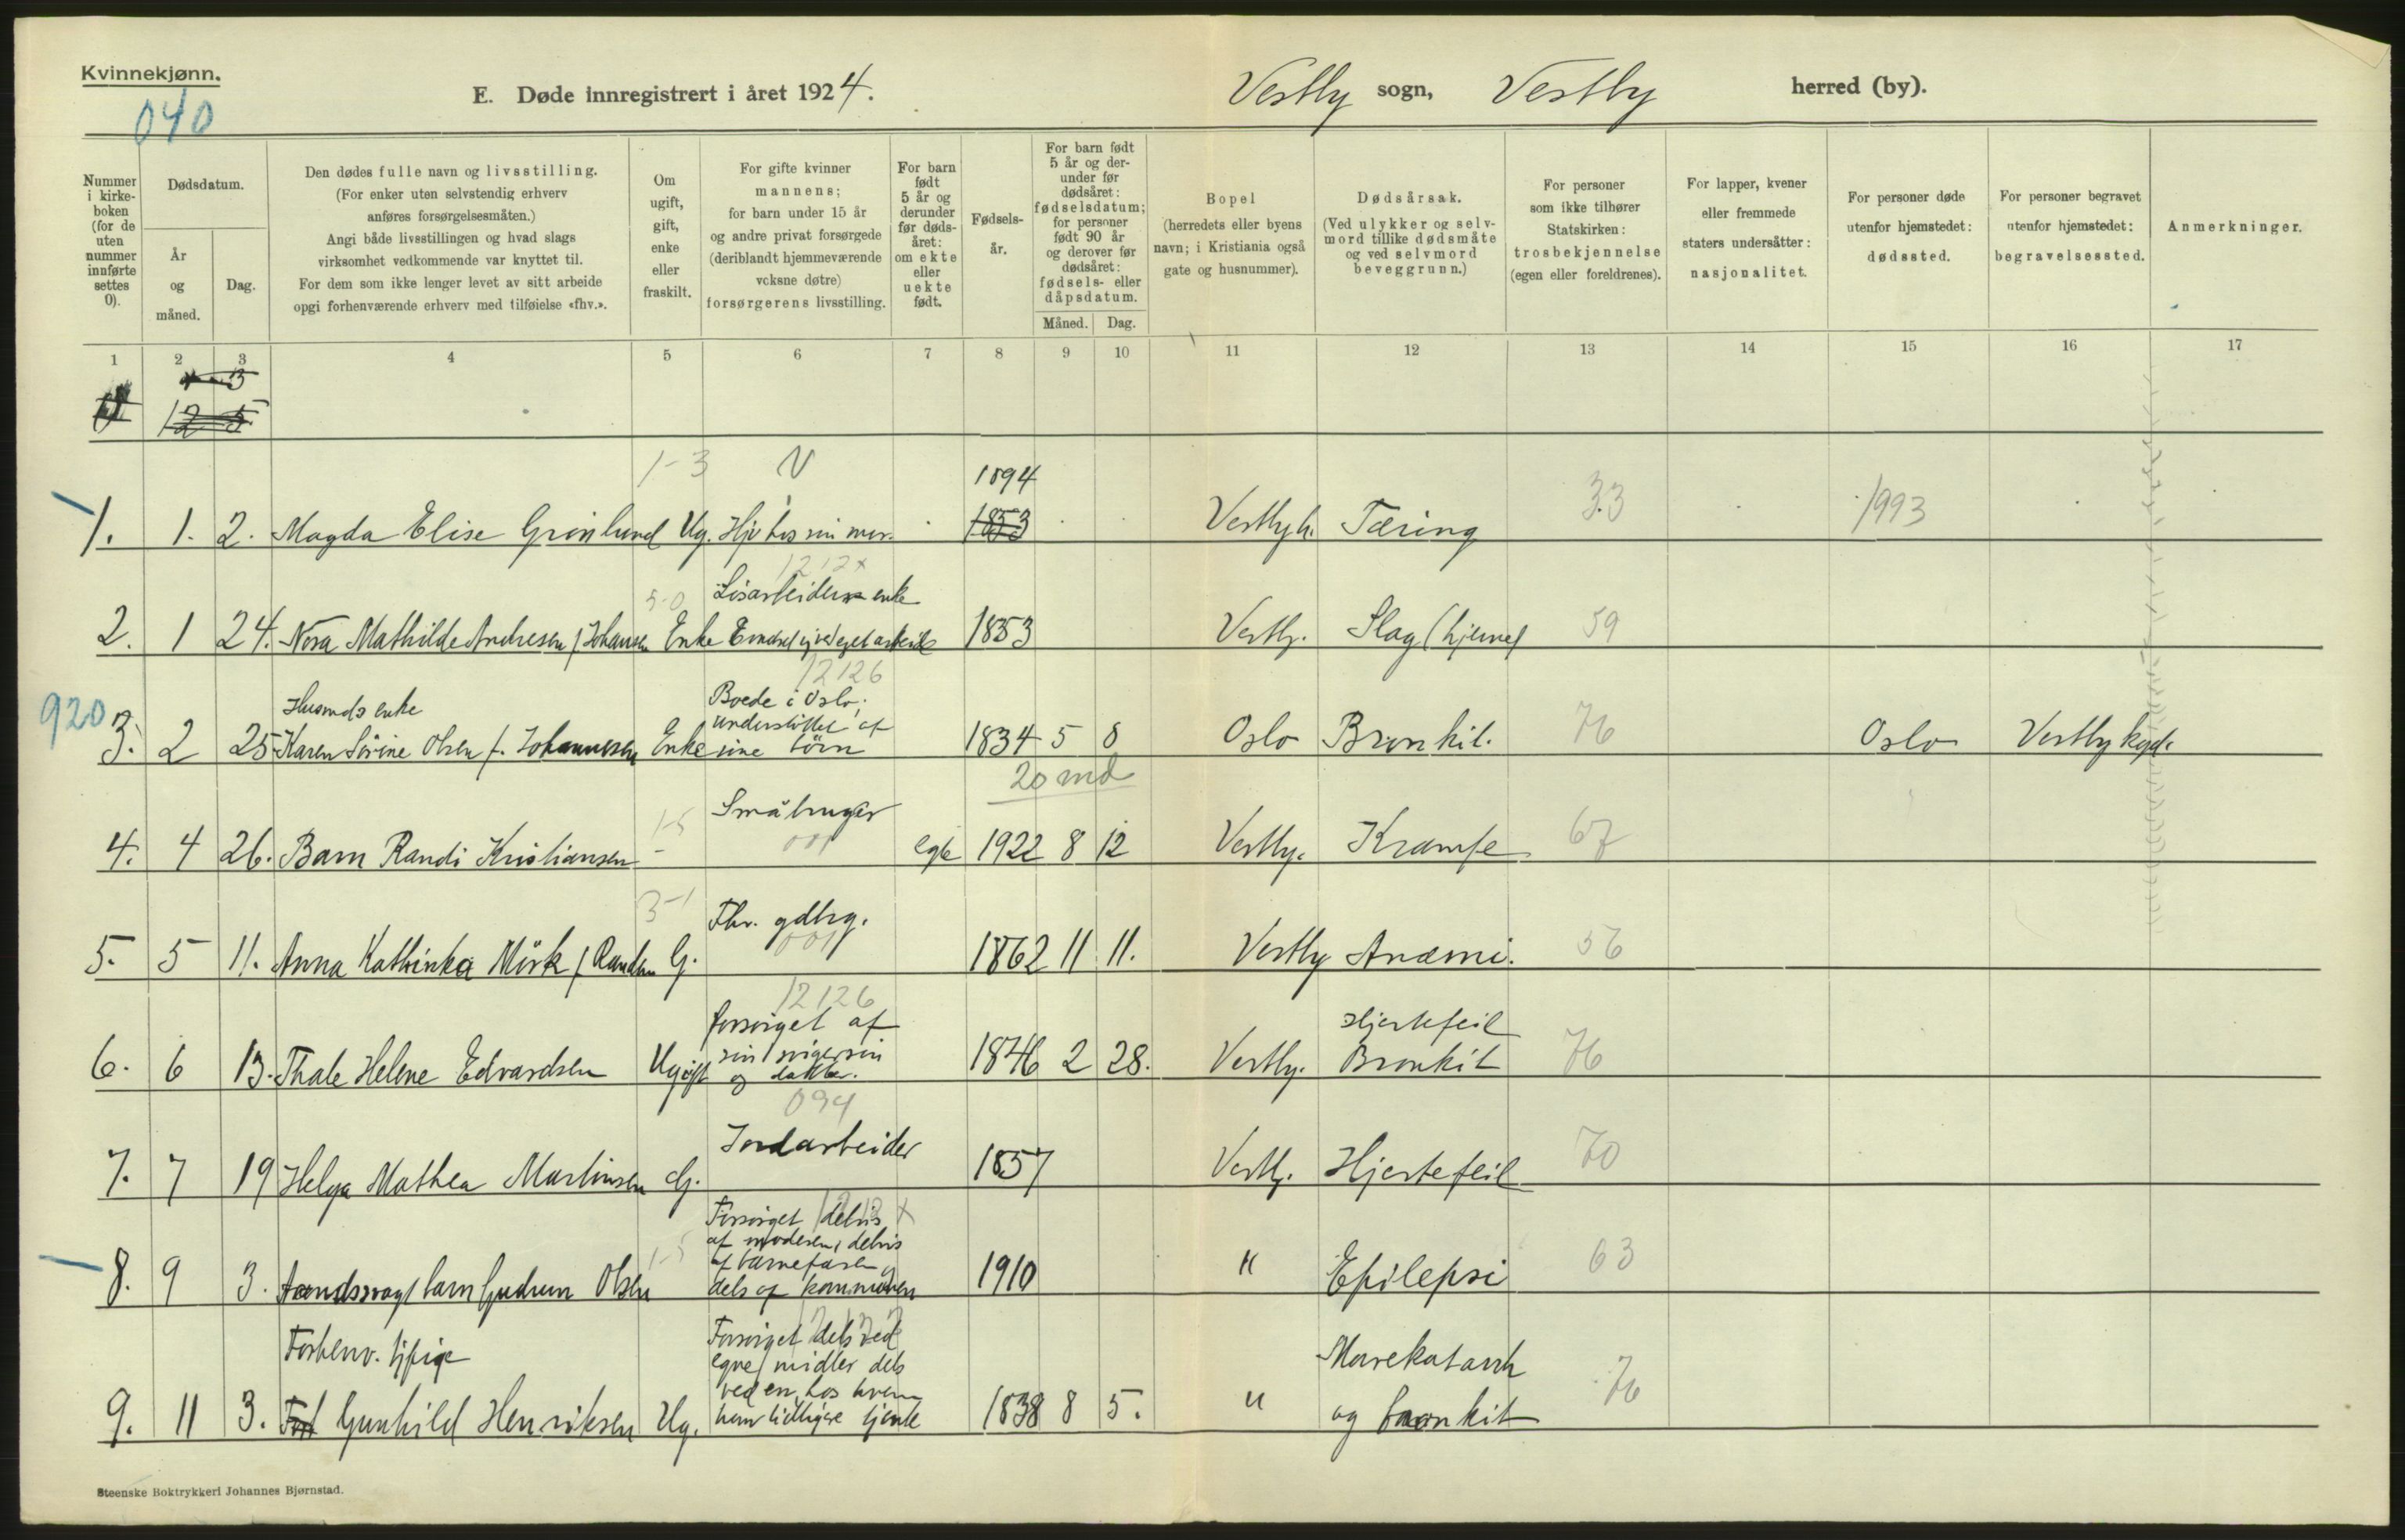 Kvinnekjønn.
040
E. Døde innregistrert i året 1924.
Vestby sogn, Vestby herred (by).
Nummer
i kirke-
boken
(for de
uten
nummer
innførte
settes
0).
Dødsdatum.
År
og
måned.
Dag.
Den dødes fulle navn og livsstilling.
(For enker uten selvstendig erhverv
anføres forsørgelsesmåten.)
Angi både livsstillingen og hvad slags
virksomhet vedkommende var knyttet til.
For dem som ikke lenger levet av sitt arbeide
opgi forhenværende erhverv med tilføielse «fhv.».
Om
ugift,
gift,
enke
eller
fraskilt.
For gifte kvinner
mannens;
for barn under 15 år
og andre privat forsørgede
(deriblandt hjemmeværende
voksne døtre)
forsørgerens livsstilling.
For barn
født
5 år og
derunder
før døds-
året:
om ekte
eller
uekte
født.
Fødsels-
år.
For barn født
5 år og der-
under før
dødsåret:
fødselsdatum;
for personer
født 90 år
og derover før
dødsåret:
fødsels- eller
dåpsdatum.
Måned. Dag.
Bopel
(herredets eller byens
navn; i Kristiania også
gate og husnummer).
Dødsårsak.
(Ved ulykker og selv-
mord tillike dødsmåte
og ved selvmord
beveggrunn.)
For personer
som ikke tilhører
Statskirken:
trosbekjennelse
(egen eller foreldrenes).
For lapper, kvener
eller fremmede
staters undersåtter:
nasjonalitet.
For personer døde
utenfor hjemstedet:
dødssted.
For personer begravet
utenfor hjemstedet:
begravelsessted.
Anmerkninger.
1 2 3 4 5 6 7 8 9 10 11 12 13 14 15 16 17
3
12 5
1-3 V 1894
1. 1. 2. Magda Elise Grönlund Ug. Hjv hos sin mor. 1853 Vestby h. Tæring 33 1993
1212x
5-0 Lösarbeiders enke
2. 1 24. Nora Mathilde Andresen f. Johansen Enke 1853 Vestb. Slag (hjerne) 59
12126
920 Husmds enke Boede i Oslo;
understöttet af
3. 2 25 Karen Sörine Olsen f. Johannesen Enke sine börn 1834 5 8 Oslo Bronkit. 76 Oslo Vestby kgd.
20 md
1-5 Småbruger
4. 4 26. Barn Randi Kristiansen - 001 egte 1922 8 12 Vestby. Krampe 67
3-1 Fhv. gdbrg.
5. 5 11. Anna Kathinka Mörk f. Randem G. 001 1862 11 11. Vestby Anæmi. 56
12126
forsörget af Hjertefeil
6. 6 13. Thale Helene Edvardsen Ugift sin svigersön 1846 2 28. Vestby. Bronkit 76
og datter.
094
Jordarbeider
7. 7 19 Helga Mathea Martinsen G. 1857 Vestb. Hjertefeil 70
Forsörget delvis
af moderen, delvis
1-5 af barnefaren og
8. 9 3. Aandssvagt barn Gudrun Olsen dels af kommunen 1910 " Epilepsi 63
Forsörget dels ved
Forhenv. tjpige egne midler dels Mavekatarrh
ved en, hos hvem
9. 11 3. Gunhild Henriksen Ug. hun tidligere tjente 1838 8 5. " og bronkit 76
Steenske Boktrykkeri Johannes Bjørnstad.